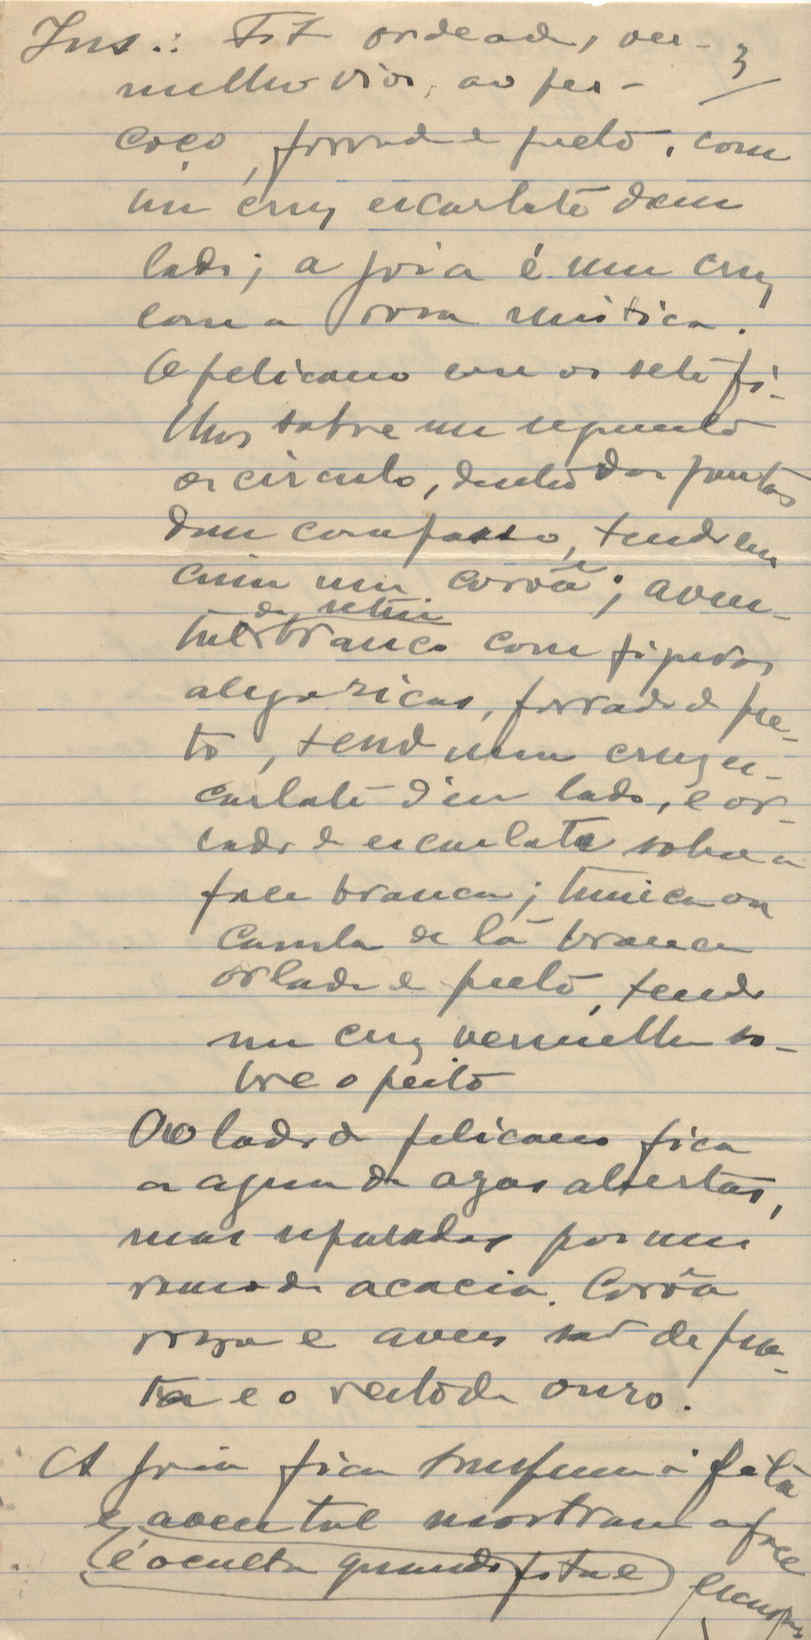 Ins.: Fita ordeada, ver- 3
melho vivo, ao pes-
coço, forrada de preto, com
um cruz escarlate dum
lado; a joia é um cruz
com a rosa mistica.
O pelicano com os sete fi-
lhos sobre um segmento
de circulo, dentro das pontas
dum compasso, tendo em
cima um corôa; aven-
tal de setim branco com figuras
alegoricas, forrado de pre-
to, tendo uma cruz es-
carlate d'um lado, e or-
lado de escarlate sobre a
face branca; tunica ou
camla de lã branca
orlada de preto, tendo
um cruz vermelha so-
bre o peito
Ao lado do pelicano fica
a aguia de azas abertas,
mas separadas por um
ramo de acacia. Corôa
rosa e aves são de pra-
ta e o resto de ouro.
A joia fica suspensa á fita
e avental mostram a face
é oculta quando fita e